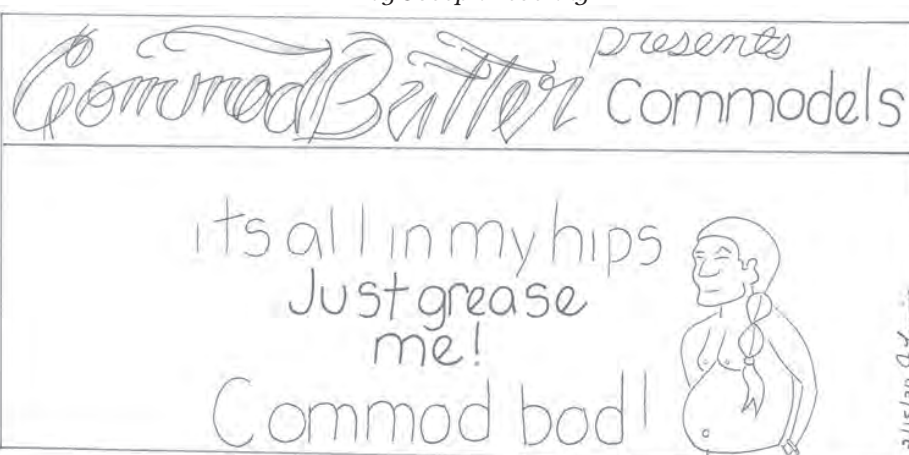 CommodButter presents
Commodels
its all in my hips
Just grease
me!
Commod bod!